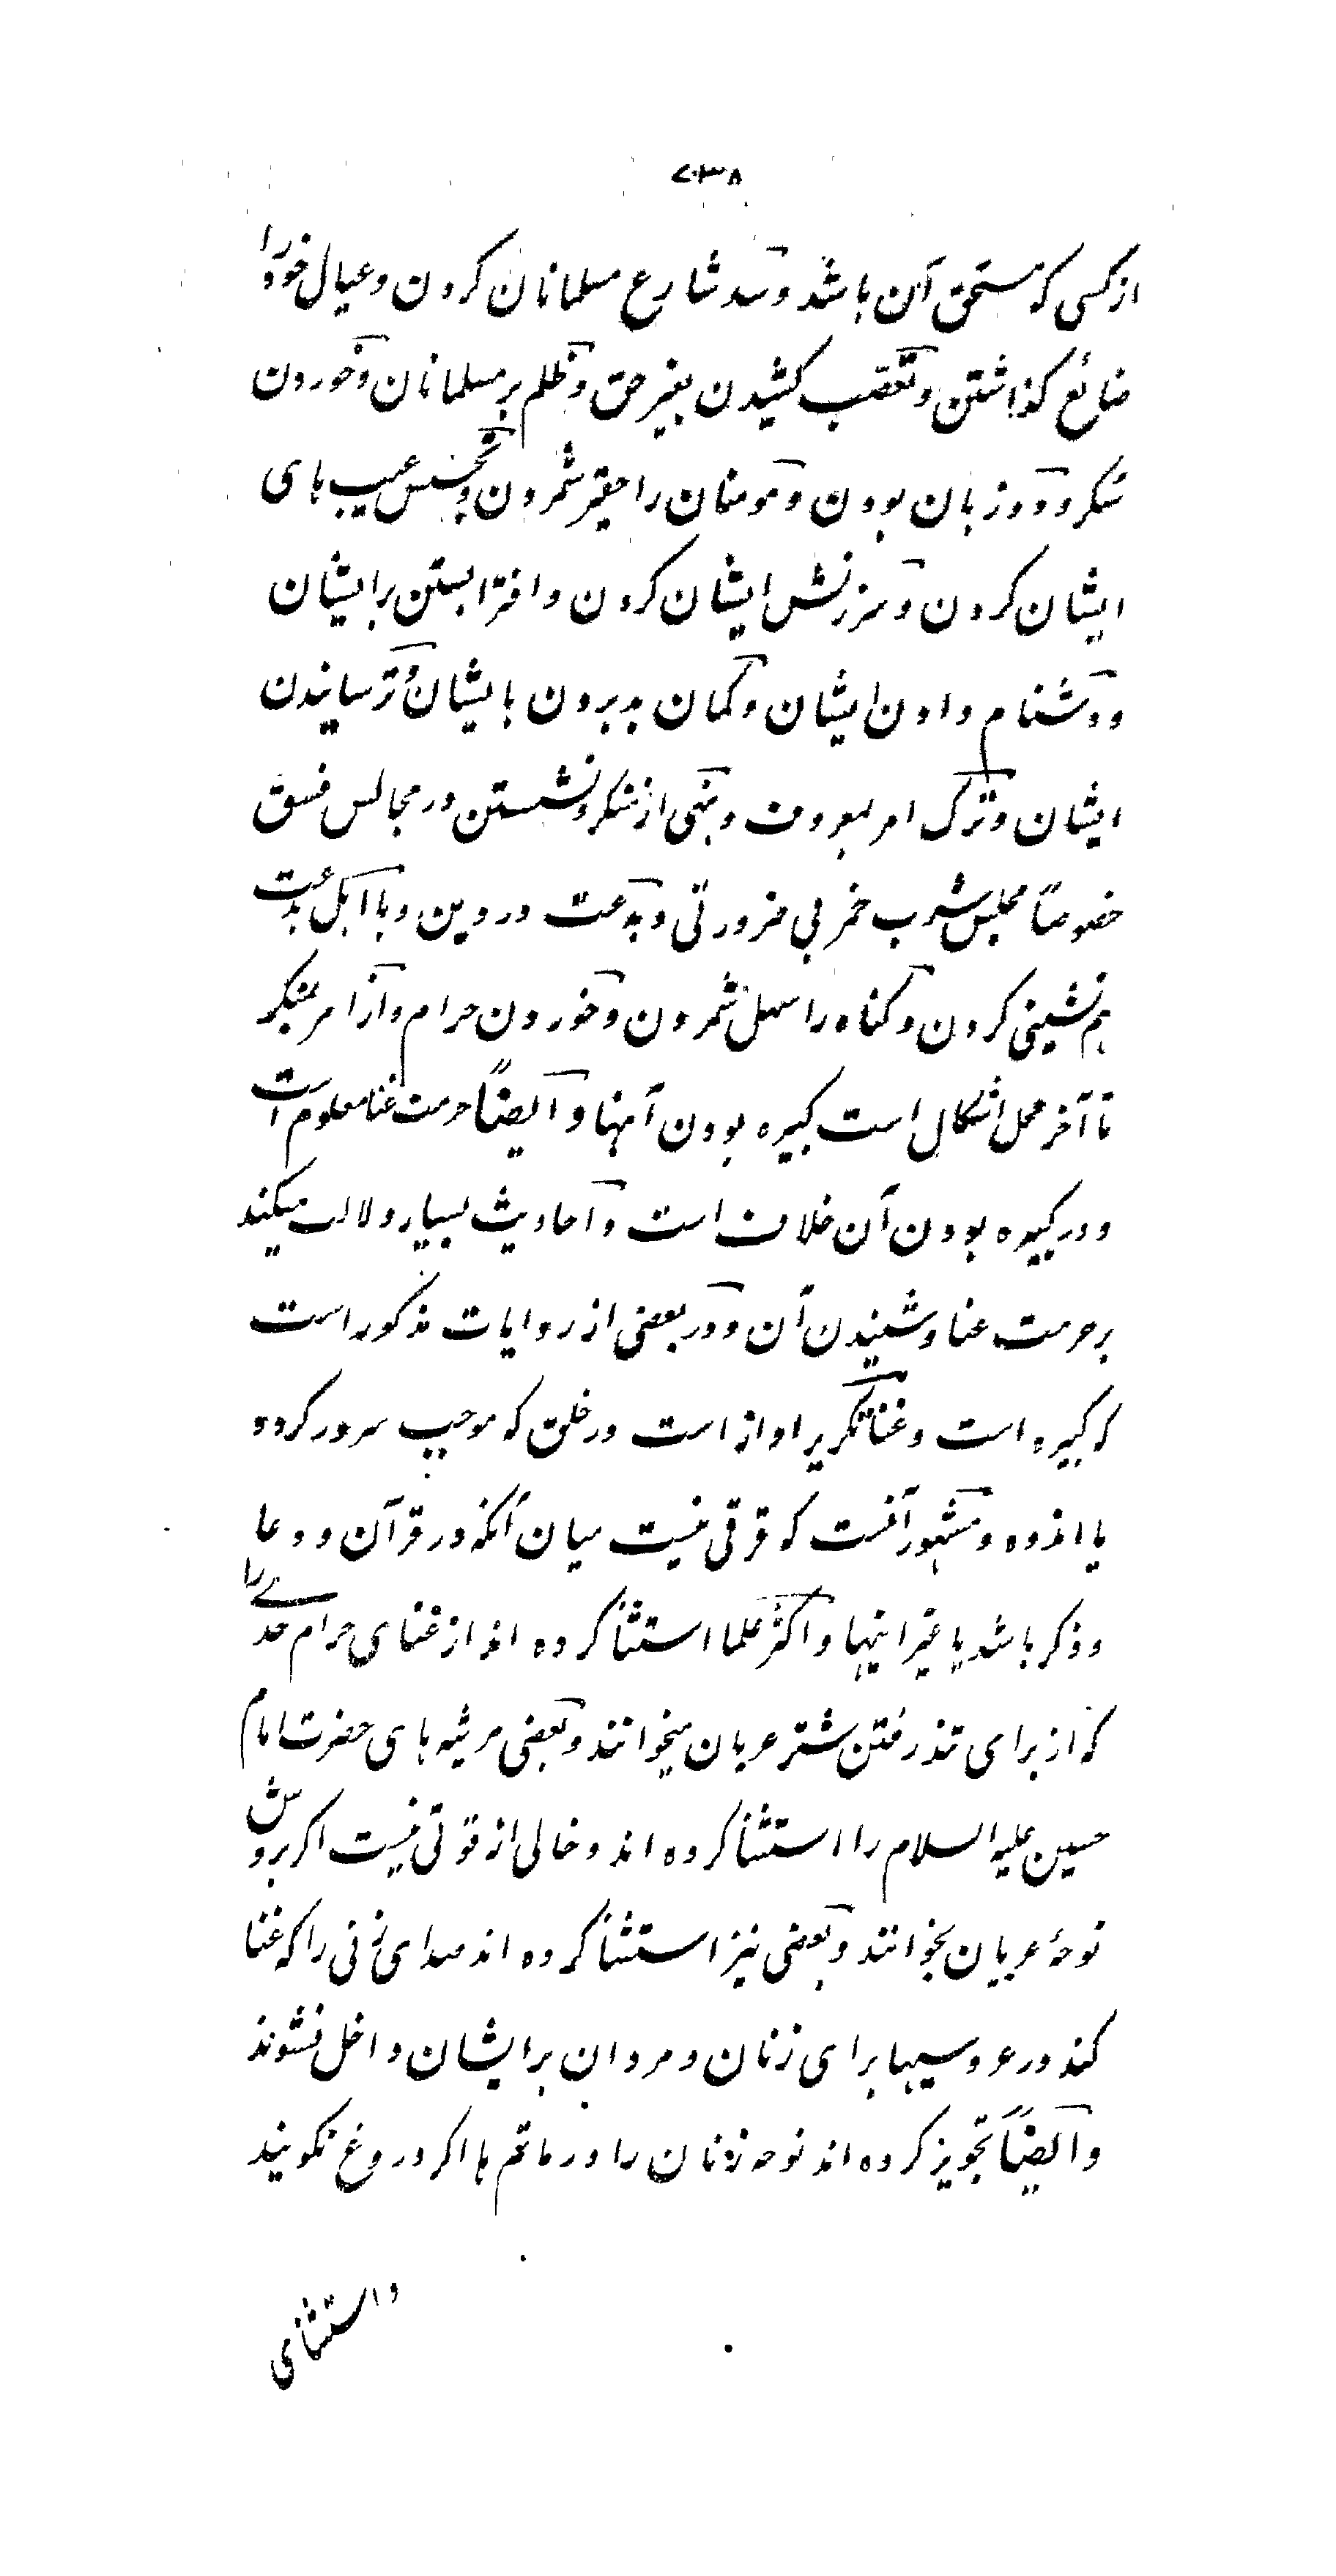 ۷۳۸
از کسی که مستحق آن باشد و سد شارع مسلمانان کردن و عیال خود را
ضائع گذاشتن و تعصب کشیدن بغیر حق و ظلم بر مسلمانان و خوردن
مسکر و دو زبان بودن و مومنان را حقیر شمردن و تجسس عیب های
ایشان کردن و سرزنش ایشان کردن و افترا بستن بر ایشان
و دشنام دادن ایشان و گمان بد بردن بایشان و ترسانیدن
ایشان و ترک امر بمعروف و نهی از منکر و نشستن در مجالس فسق
خصوصاً مجلس شرب خمر بی ضرورتی و بدعت در دین و با اهل بدعت
هم نشینی کردن و گناه را سهل شمردن و خوردن حرام و از امر بمنکر
تا آخر محل اشکال است کبیره بودن آنها و ایضاً حرمت غنا معلوم است
و در کبیره بودن آن خلاف است و احادیث بسیار دلالت میکند
بر حرمت غنا و شنیدن آن و در بعضی از روایات مذکور است
که کبیره است و غنا تکریر اواز است در حلق که موجب سرور گردد
یا اندوه و مشهور آنست که فرقی نیست میان آنکه در قرآن و دعا
و ذکر باشد یا غیر اینها و اکثر علما استثنا کرده اند از غنای حرام حدے را
که از برای تند رفتن شتر عربان میخوانند و بعضی مرثیه های حضرت امام
حسین علیه السلام را استثنا کرده اند و خالی از قوتی نیست اگر بروش
نوحهٔ عربان بخوانند و بعضی نیز استثنا کرده اند صدای زنی را که غنا
کند در عروسیها برای زنان و مردان بر ایشان داخل نشوند
و ایضاً تجویز کرده اند نوحه زنان را در ماتم ها اگر دروغ نگویند
و استثنای